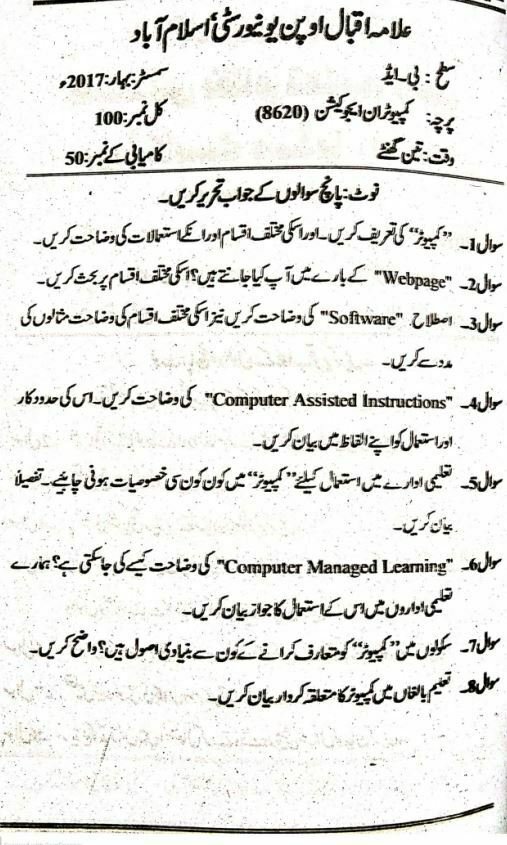 علامہ اقبال اوپن یونیورسٹی، اسلام آباد
سطح: بی۔ ایڈ سمسٹر: بہار: 2017ء
پرچہ: کمپیوٹر ان ایجوکیشن (8620) کل نمبر: 100
وقت: تین گھنٹے کامیابی کے نمبر: 50
نوٹ: پانچ سوالوں کے جواب تحریر کریں۔
سوال 1۔ "کمپیوٹر" کی تعریف کریں۔ اور اسکی مختلف اقسام اور انکے استعمالات کی وضاحت کریں۔
سوال 2۔ "Webpage" کے بارے میں آپ کیا جانتے ہیں؟ اسکی مختلف اقسام پر بحث کریں۔
سوال 3۔ اصطلاح "Software" کی وضاحت کریں نیز اسکی مختلف اقسام کی وضاحت مثالوں کی
مدد سے کریں۔
سوال 4۔ "Computer Assisted Instructions" کی وضاحت کریں۔ اس کی حدود کار
اور استعمال کو اپنے الفاظ میں بیان کریں۔
سوال 5۔ تعلیمی ادارے میں استعمال کیلئے "کمپیوٹر" میں کون کون سی خصوصیات ہونی چاہئیے۔ تفصیلاً
بیان کریں۔
سوال 6۔ "Computer Managed Learning" کی وضاحت کیسے کی جاسکتی ہے؟ ہمارے
تعلیمی اداروں میں اس کے استعمال کا جواز بیان کریں۔
سوال 7۔ سکولوں میں "کمپیوٹر" کو متعارف کرانے کے کون سے بنیادی اصول ہیں؟ واضح کریں۔
سوال 8۔ تعلیم بالغاں میں کمپیوٹر کا متعلقہ کردار بیان کریں۔